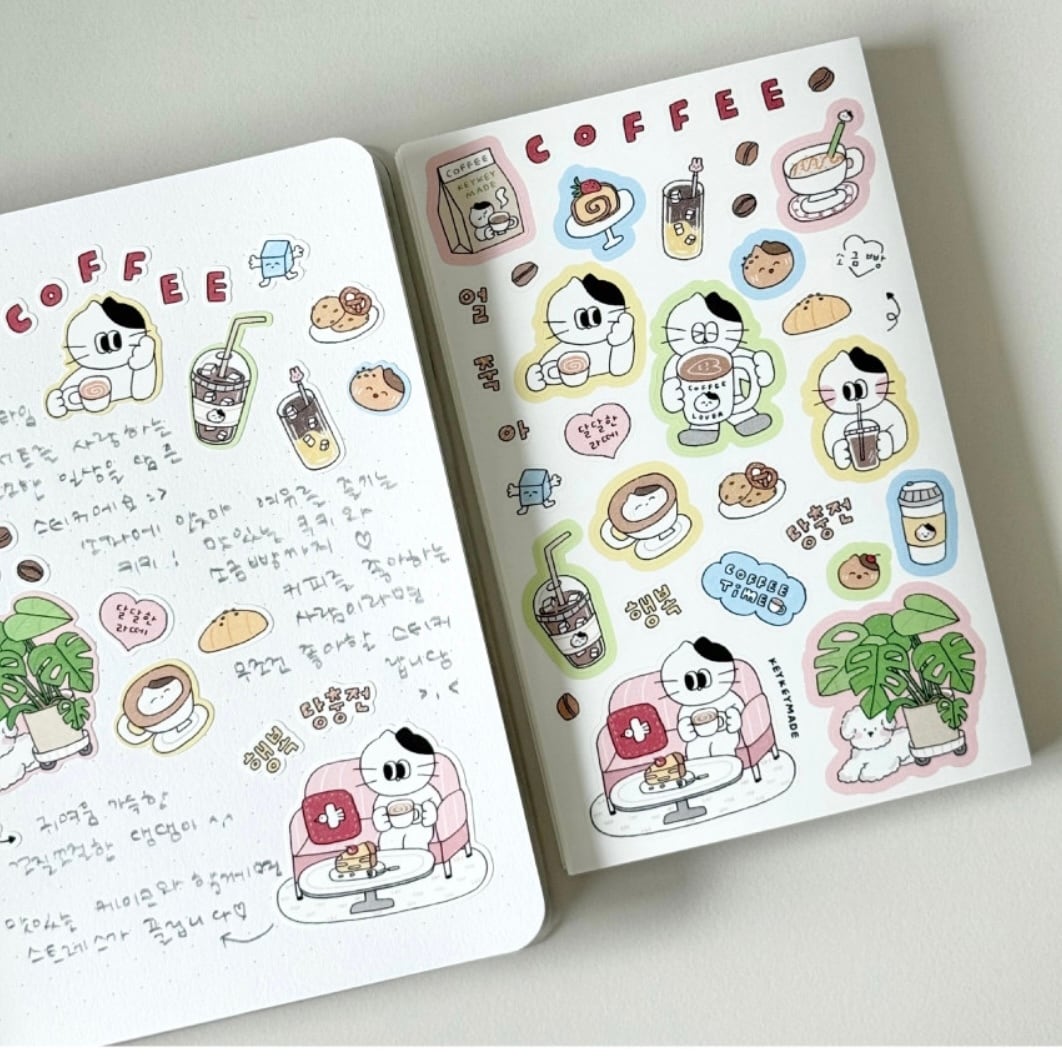 COFFEE
사랑하는
일상을 담은
스티커에요 :>
여유를 즐기는
맛있는 쿠키와
소금빵까지 ♡
커피를 좋아하는
사람이라면
좋아할 스티커
랍니당
>,<
달달한
라떼
당충전
행복
귀여움 가득한
댕댕이 ^,^
맛있는 케이크와 함께라면
스트레스가 풀립니다♡
COFFEE
COFFEE
KEYKEY
MADE
소금빵
얼
죽
아
COFFEE
LOVER
달달한
라떼
당충전
COFFEE
TIME
행복
KEYKEYMADE